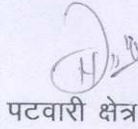 पटवारी क्षेत्र